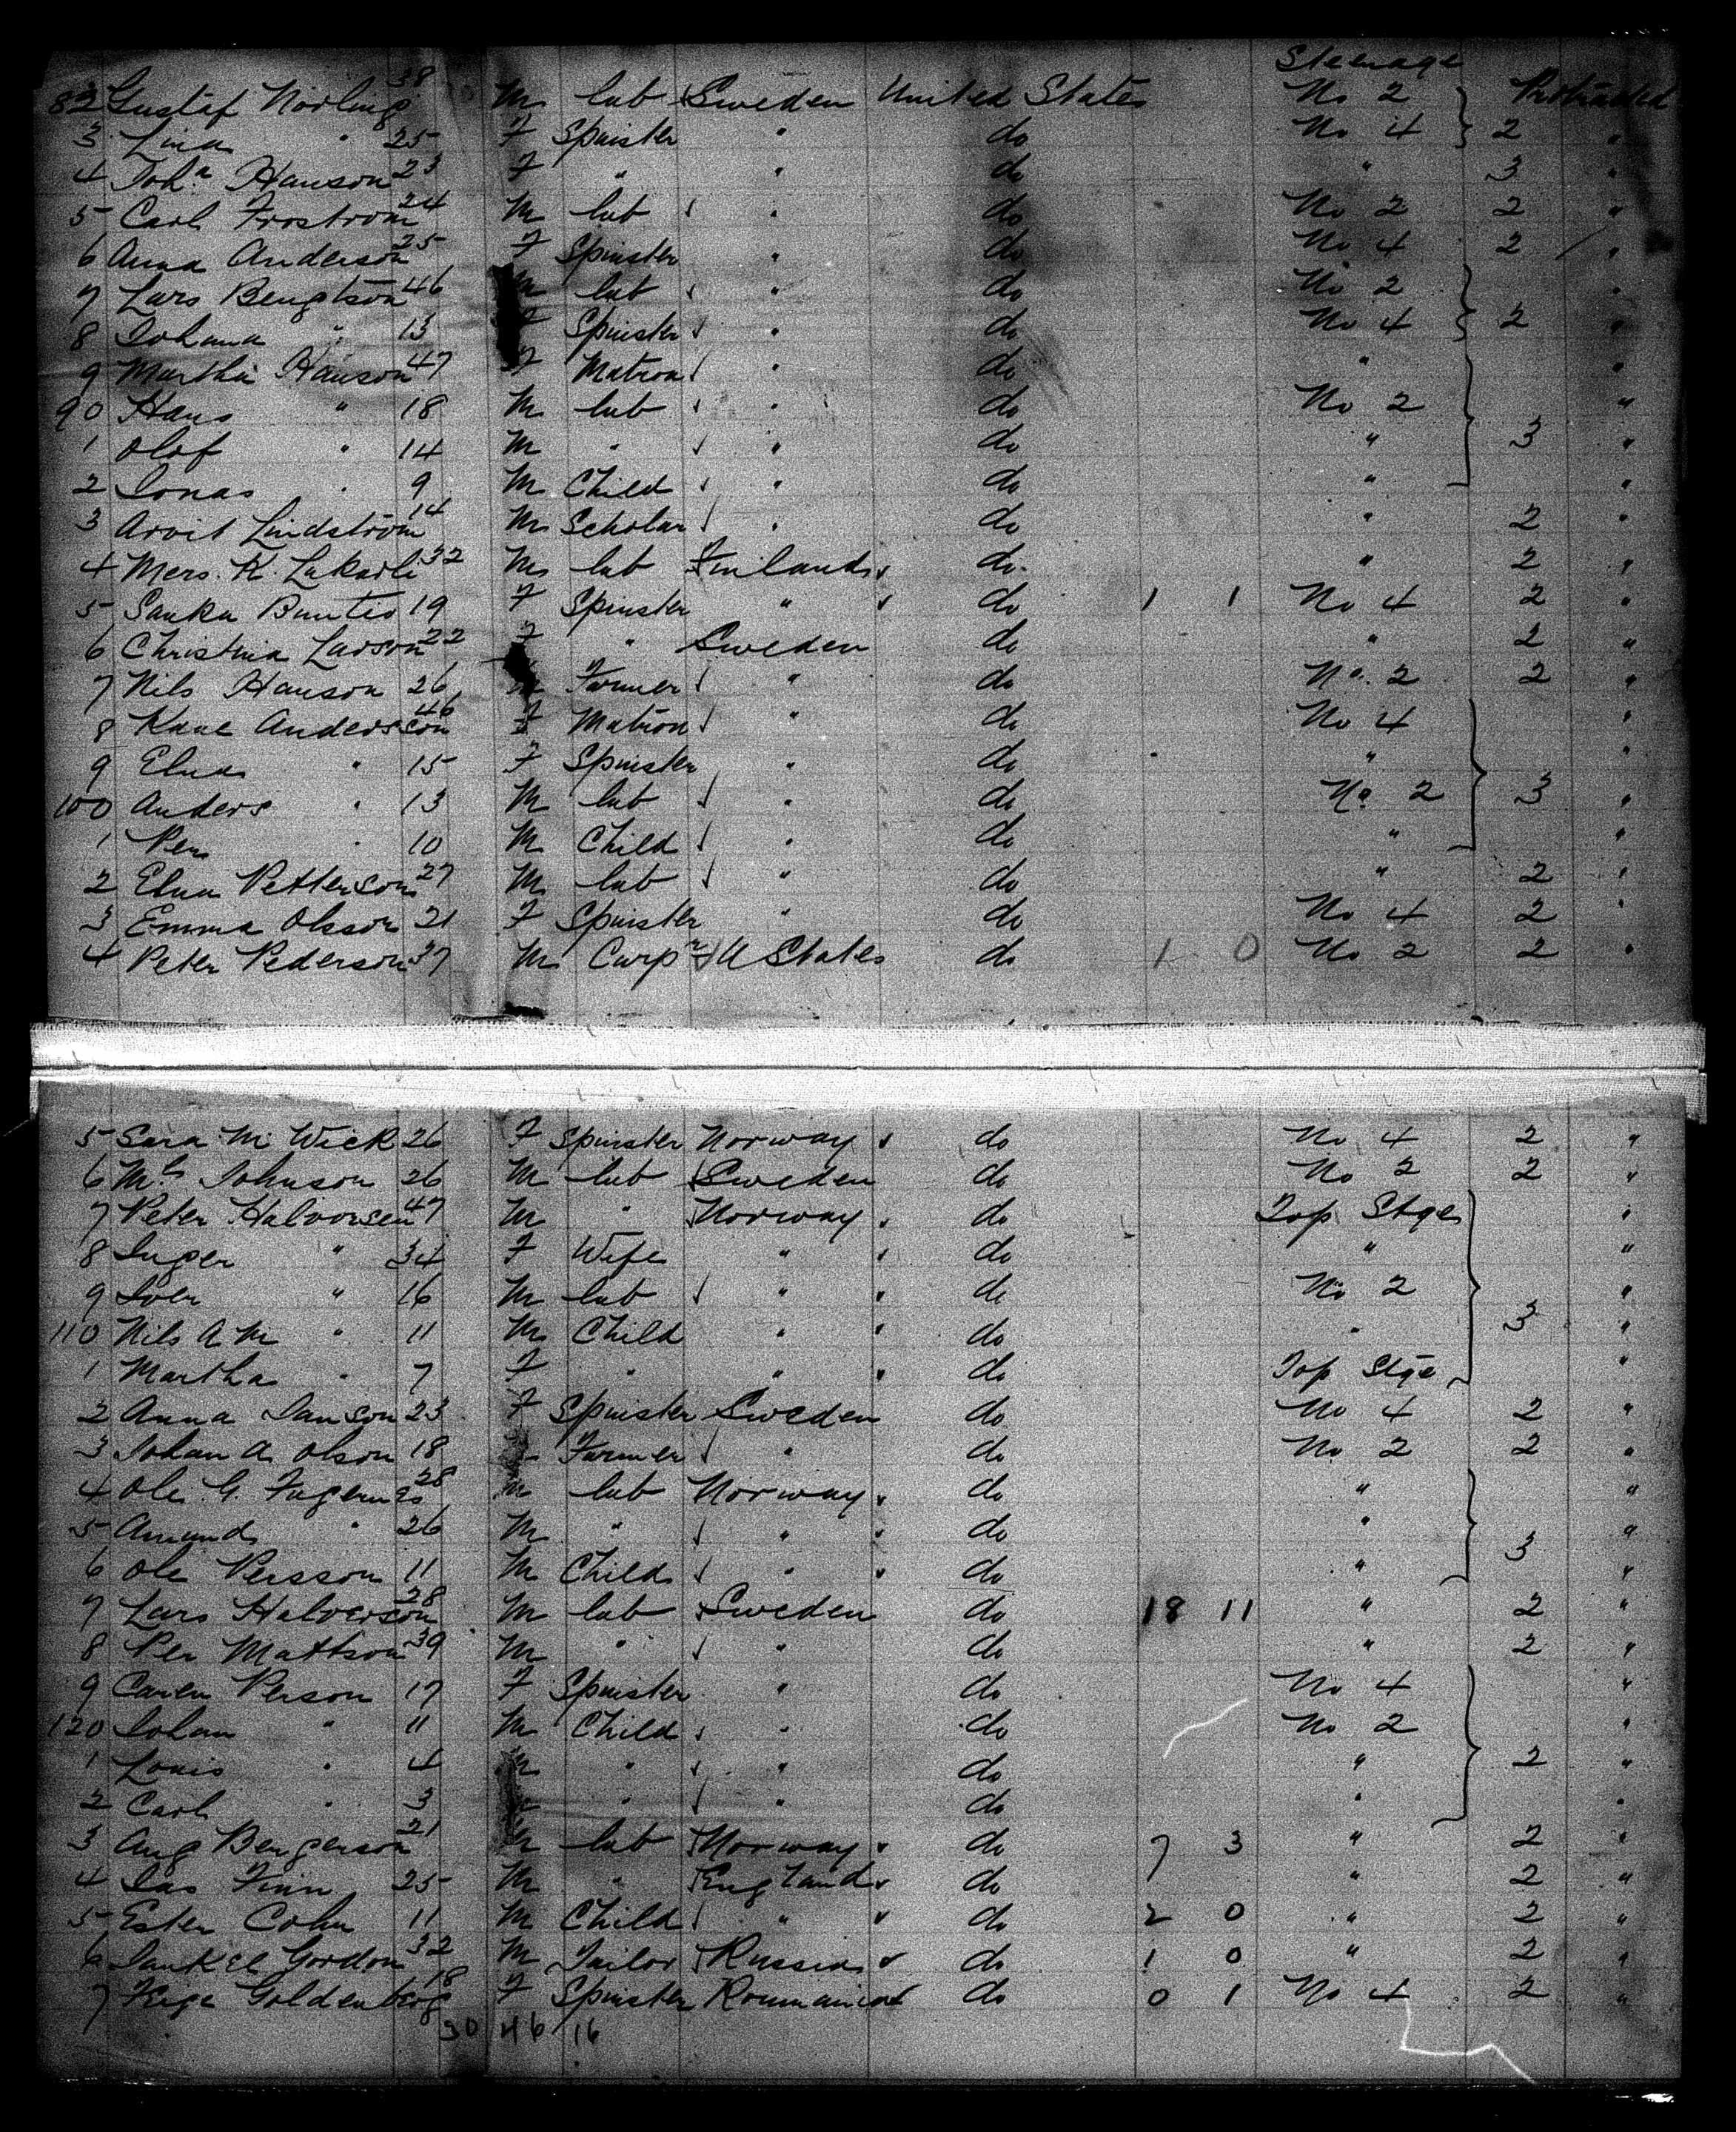 Steerage
82 Gustaf Norling 38 M lab Sweden United States No 2 Protracted
3 Lina " 25 F Spinster " do No 4 2 "
4 Joh.a Hanson 23 F " " do " 3 "
5 Carl Frostrom 24 M lab " do No 2 2 "
6 Anna Anderson 25 F Spinster " do No 4 2 "
7 Lars Bengtson 46 M lab " do No 2 "
8 Johana " 13 F Spinster " do No 4 2 "
9 Martha Hanson 47 F Matron " do " "
90 Hans " 18 M lab " do No 2 "
1 Olof " 14 M " " do " 3 "
2 Jonas " 9 M Child " do " "
3 Arvit Lindström 14 M Scholar " do " 2 "
4 Mers. K. 32 M lab Finland do " 2 "
5 19 F Spinster " do 1 1 No 4 2 "
6 Christina Larson 22 F " Sweden do " 2 "
7 Nils Hanson 26 M Farmer " do No. 2 2 "
8 Andersson 46 F Matron " do No 4 "
9 Elna " 15 F Spinster " do " "
100 Anders " 13 M lab " do No 2 3 "
1 Per " 10 M Child " do " "
2 Elna Petterson 27 M lab " do " 2 "
3 Emma Olsson 21 F Spinster " do No 4 2 "
4 Peter Pederson 37 M Carpr U States do 1 0 No 2 2 "
5 Sara M Wick 26 F Spinster Norway do No 4 2 "
6 Johnson 26 M lab Sweden do No 2 2 "
7 Peter Halvorsen 47 M " Norway do Top Stge "
8 Inger " 34 F Wife " do " "
9 Iver " 16 M lab " do No 2 "
110 Nils A M " 11 M Child " do " 3 "
1 Martha " 7 F " " do Top Stge "
2 Anna Janson 23 F Spinster Sweden do No 4 2 "
3 Johan A Olson 18 Farmer " do No 2 2 "
4 Ole G. Fagernes 28 M lab Norway do " "
5 Amund " 26 M " " do " 3 "
6 Ole Persson 11 M Child " do " "
7 Lars Halverson 28 M lab Sweden do 18 11 " 2 "
8 Per Mattson 39 M " " do " 2 "
9 Caren Person 17 F Spinster " do No 4 "
120 Johan " 11 M Child " do No 2 "
1 Louis " 4 M " " do " 2 "
2 Carl " 3 " " do " "
3 Aug Bengerson 21 M lab Norway do 7 3 " 2 "
4 Jas Finn 25 M " England do " 2 "
5 Ester Cohn 11 M Child " do 2 0 " 2 "
6 Jankel Gordon 32 M Tailor Russia do 1 0 " 2 "
7 Feige Goldenberg 18 F Spinster Roumania do 0 1 No 4 2 "
30 46 16